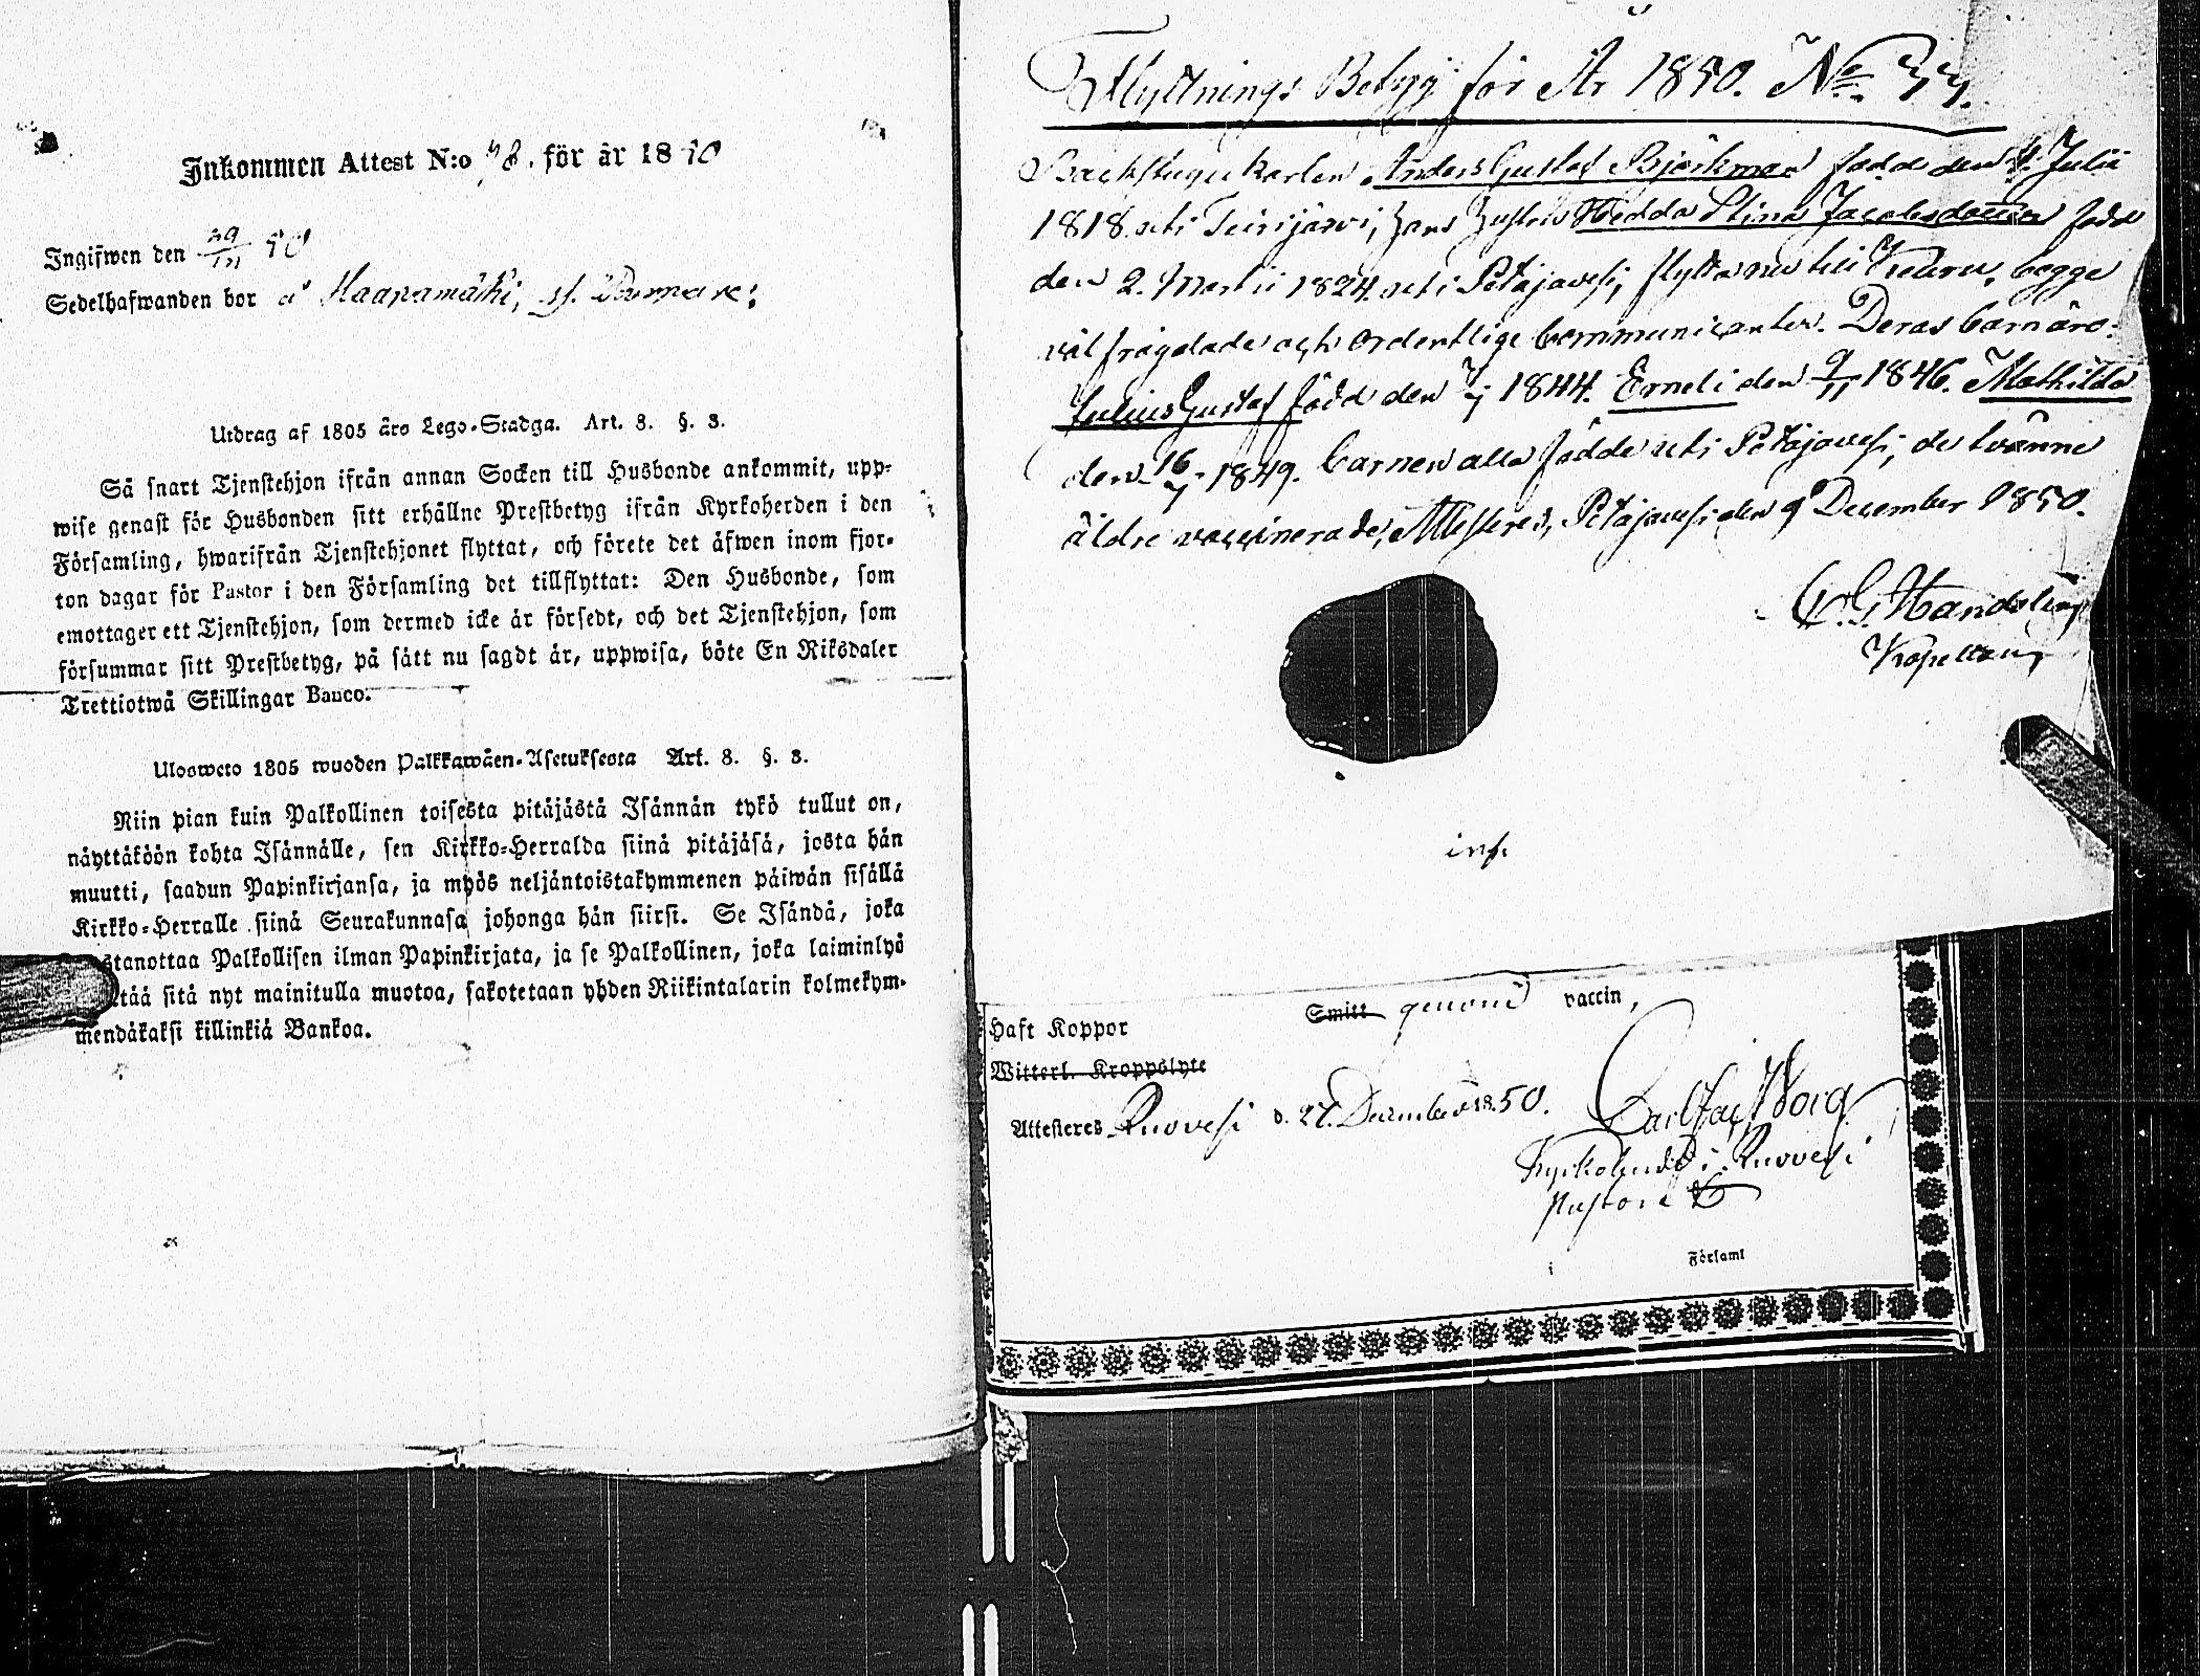 Inkommen Attest N:o 78. för år 1850
Ingifwen den 29/12 50
Sedelhafwanden bor å Haapamäki,
Utdrag af 1805 års Lego-Stadga. Art. 8. §. 3.
Så snart Tjenstehjon ifrån annan Socken till Husbonde ankommit, upp-
wise genast för Husbonden sitt erhållne Prestbetyg ifrån Kyrkoherden i den
Församling, hwarifrån Tjenstehjonet flyttat, och förete det äfwen inom fjor-
ton dagar för Pastor i den Församling det tillflyttat: Den Husbonde, som
emottager ett Tjenstehjon, som dermed icke är försedt, och det Tjenstehjon, som
försummar sitt Prestbetyg, på sätt nu sagdt är, uppwisa, böte En Riksdaler
Trettiotwå Skillingar Banco.
Ulosweto 1805 wuoden Palkkawäen-Asetuksesta Art. 8. §. 3.
Niin pian kuin Palkollinen toisesta pitäjästä Isännän tykö tullut on,
näyttäköön kohta Isännälle, sen Kirkko-Herralda siinä pitäjäsä, josta hän
muutti, saadun Papinkirjansa, ja myös neljäntoistakymmenen päiwän sisällä
Kirkko-Herralle siinä Seurakunnasa johonga hän siirsi. Se Isändä, joka
stanottaa Palkollisen ilman Papinkirjata, ja se Palkollinen, joka laiminlyö
tää sitä nyt mainitulla muotoa, sakotetaan yhden Riikintalarin kolmekym-
mendäkaksi killinkiä Bankoa.
Flyttnings Betyg för År 1850. No 37.
Backstugukarlen Anders Gustaf Björkman född den 4. Julii
1818 uti Teirijärvi, hans hustru Hedda Stina Jacobsdotter född
den 2. Martii 1824 uti Petäjävesi, flytta nu till Keuru, begge
väl frägdade och ordentlige Communicanter. Deras barn äro:
Julius Gustaf född den 1844. Erneti den 9/11 1846. Mathilda
den 16 1849. barnen alla födde uti Petäjävesi, de tvänne
äldre vaccinerade, Attesteres, Petäjävesi den 9 December 1850.
C. G. Handolin
Kapellan
inf.
Haft Koppor Smitt genom vaccin,
Witterl. Kroppslyte
Attesteres Ruovesi d. 27. December 1850. Carl Borg
Kyrkoherde i Ruovesi
Pastor
i Församl